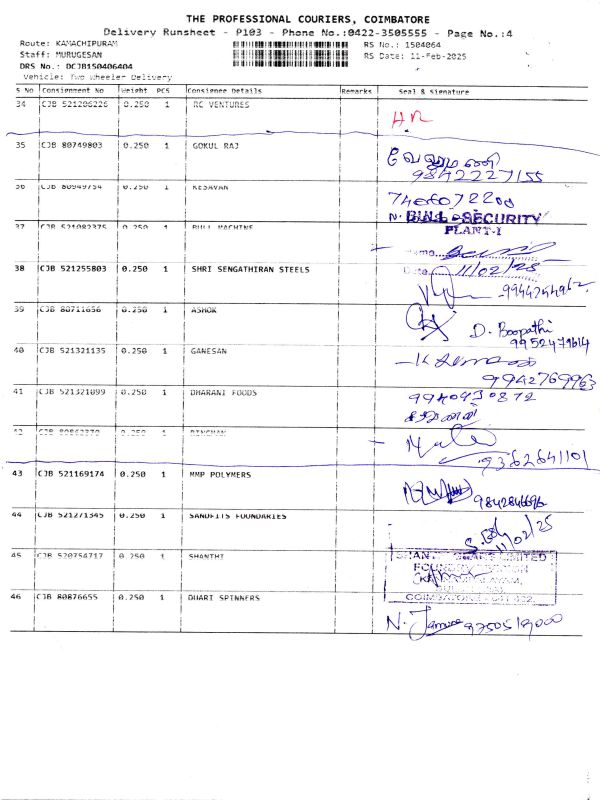 THE PROFESSIONAL COURIERS, COIMBATORE
Delivery Runsheet - P103 - Phone No.:0422-3505555 - Page No.:4
Route: KAMACHIPURAM RS No.: 1504064
Staff: MURUGESAN RS Date: 11-Feb-2025
DRS No.: DCJB1504064O4
Vehicle: Two Wheeler Delivery
S No Consignment No Weight PCS Consignee Details Remarks Seal & Signature
34 CJB 521206226 0.250 1 RC VENTURES
35 CJB 80749803 0.250 1 GOKUL RAJ
9842227155
36 CJB 80949754 0.250 1 KESAVAN
37 CJB 521082375 0.250 1 BULL MACHINE
BULL SECURITY
PLANT-I
Name
Date 11/02/25
38 CJB 521255803 0.250 1 SHRI SENGATHIRAN STEELS
39 CJB 80711656 0.250 1 ASHOK
D. Boopathi
40 CJB 521321135 0.250 1 GANESAN
9942769963
41 CJB 521321099 0.250 1 DHARANI FOODS
9940930872
42 CJB 80862370 0.250 1
9362641101
43 CJB 521169174 0.250 1 MMP POLYMERS
9842846696
44 CJB 521271345 0.250 1 SANDFITS FOUNDARIES
11/02/25
45 CJB 520754717 0.250 1 SHANTHI
46 CJB 80876655 0.250 1 DHARI SPINNERS
9750519000